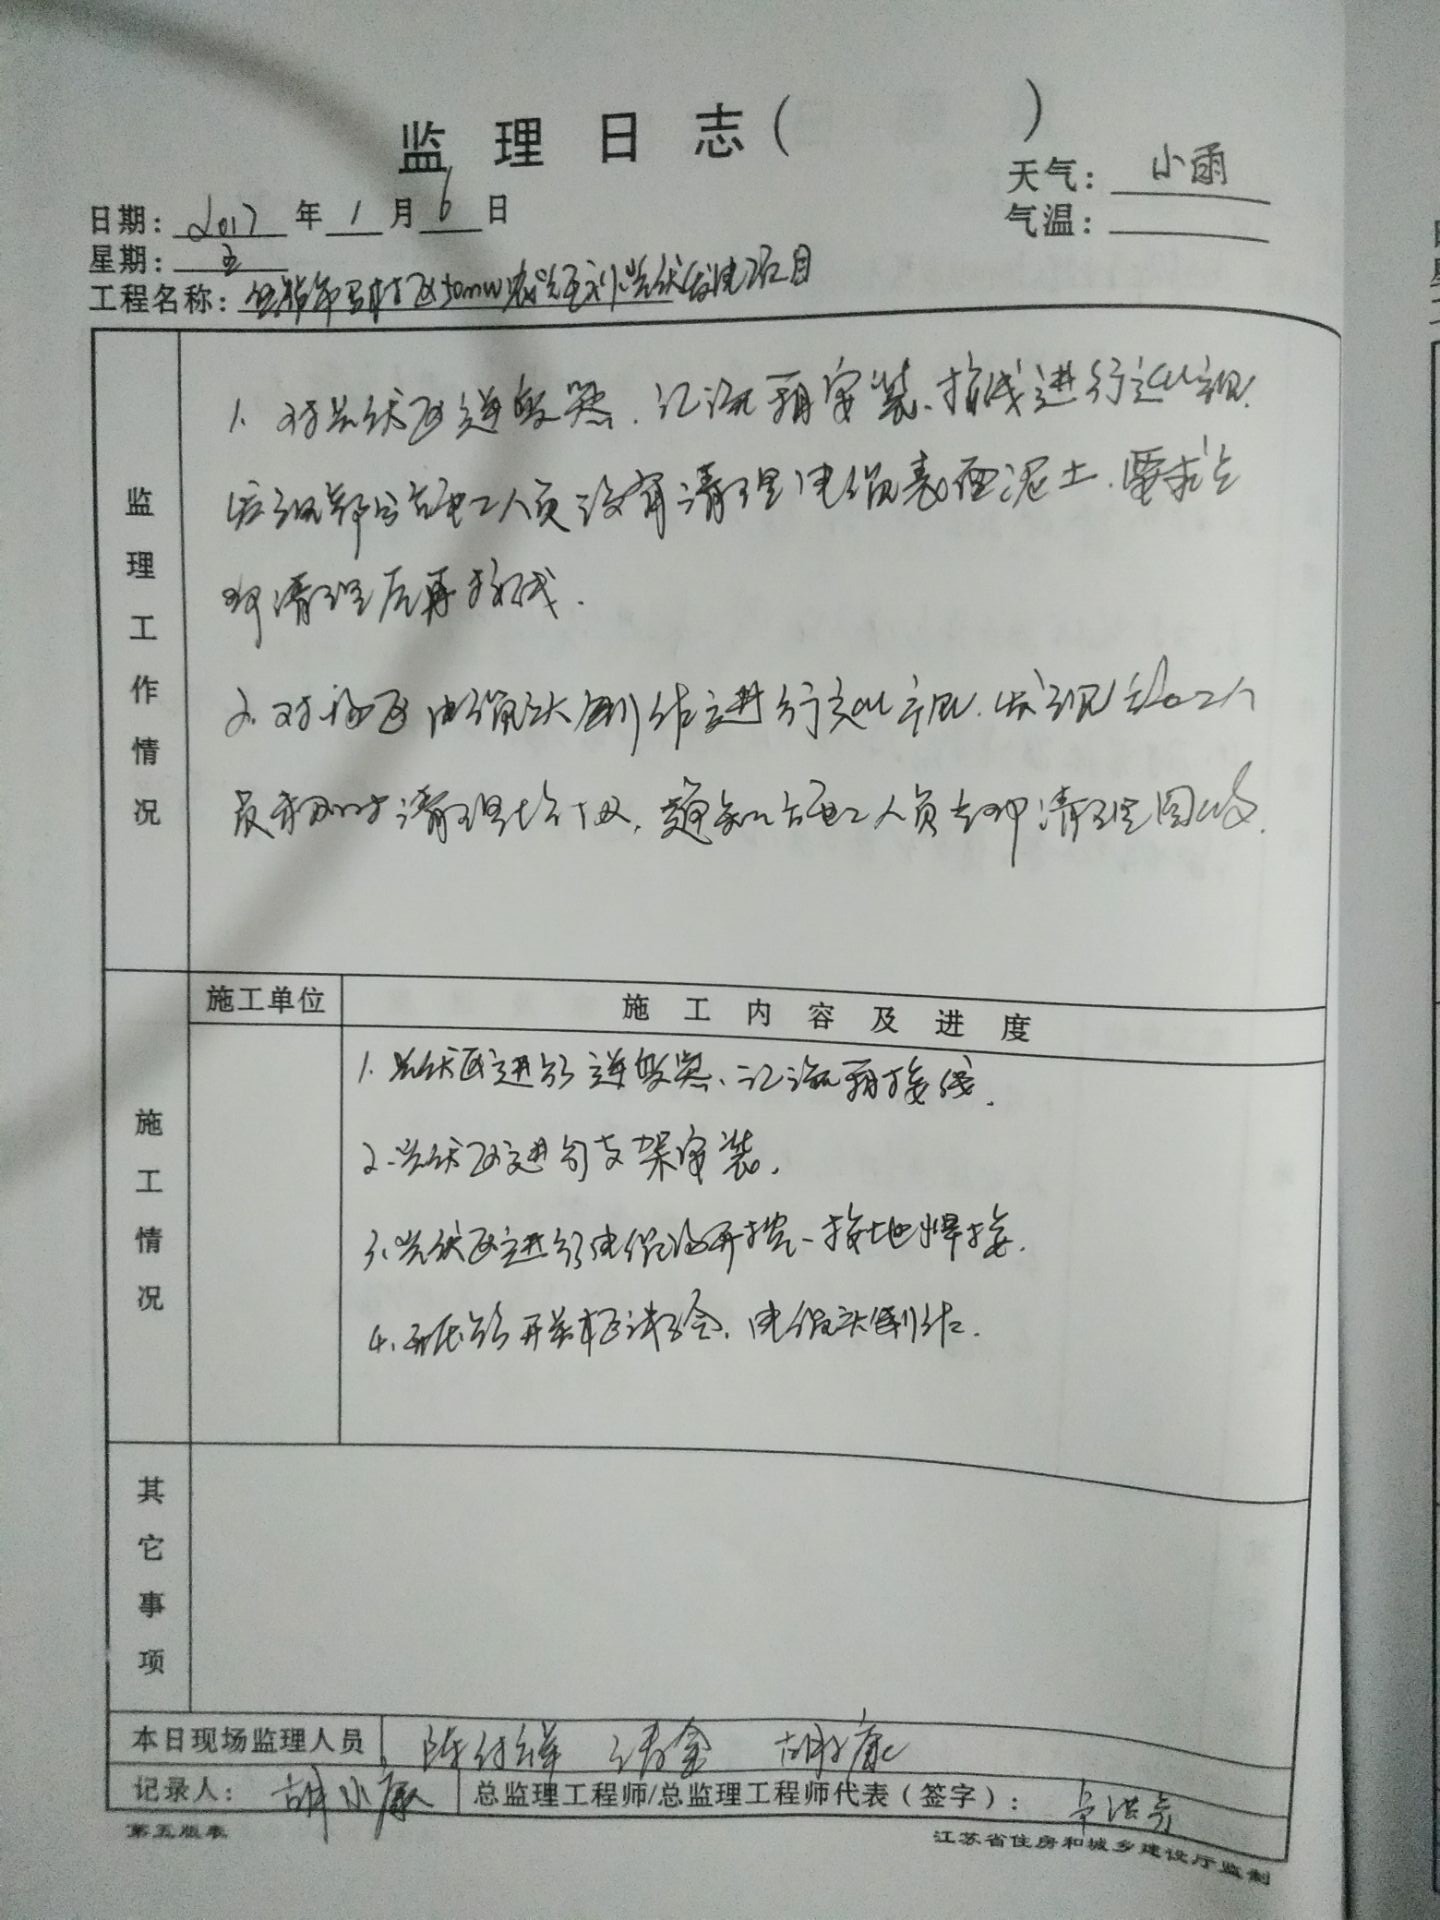 监理日志(　　)
天气: 小雨
日期: 2017 年 1 月 6 日
气温:
星期: 五
工程名称: 50MW 光伏发电项目
监理工作情况
1. 对光伏区逆变器、汇流箱安装、接线进行巡视.
发现部分施工人员没有清理电缆表面泥土、要求立
即清理后再接线.
2. 对场区电缆头制作进行巡视, 发现施工人
员未及时清理垃圾, 通知施工人员立即清理回收.
施工情况
施工单位
施工内容及进度
1. 光伏区进行逆变器、汇流箱接线.
2. 光伏区进行支架安装.
3. 光伏区进行电缆沟开挖、接地焊接.
4. 开关柜试验、电缆头制作.
其它事项
本日现场监理人员 陈
记录人: 胡小康 总监理工程师/总监理工程师代表(签字):
第五版表 江苏省住房和城乡建设厅监制